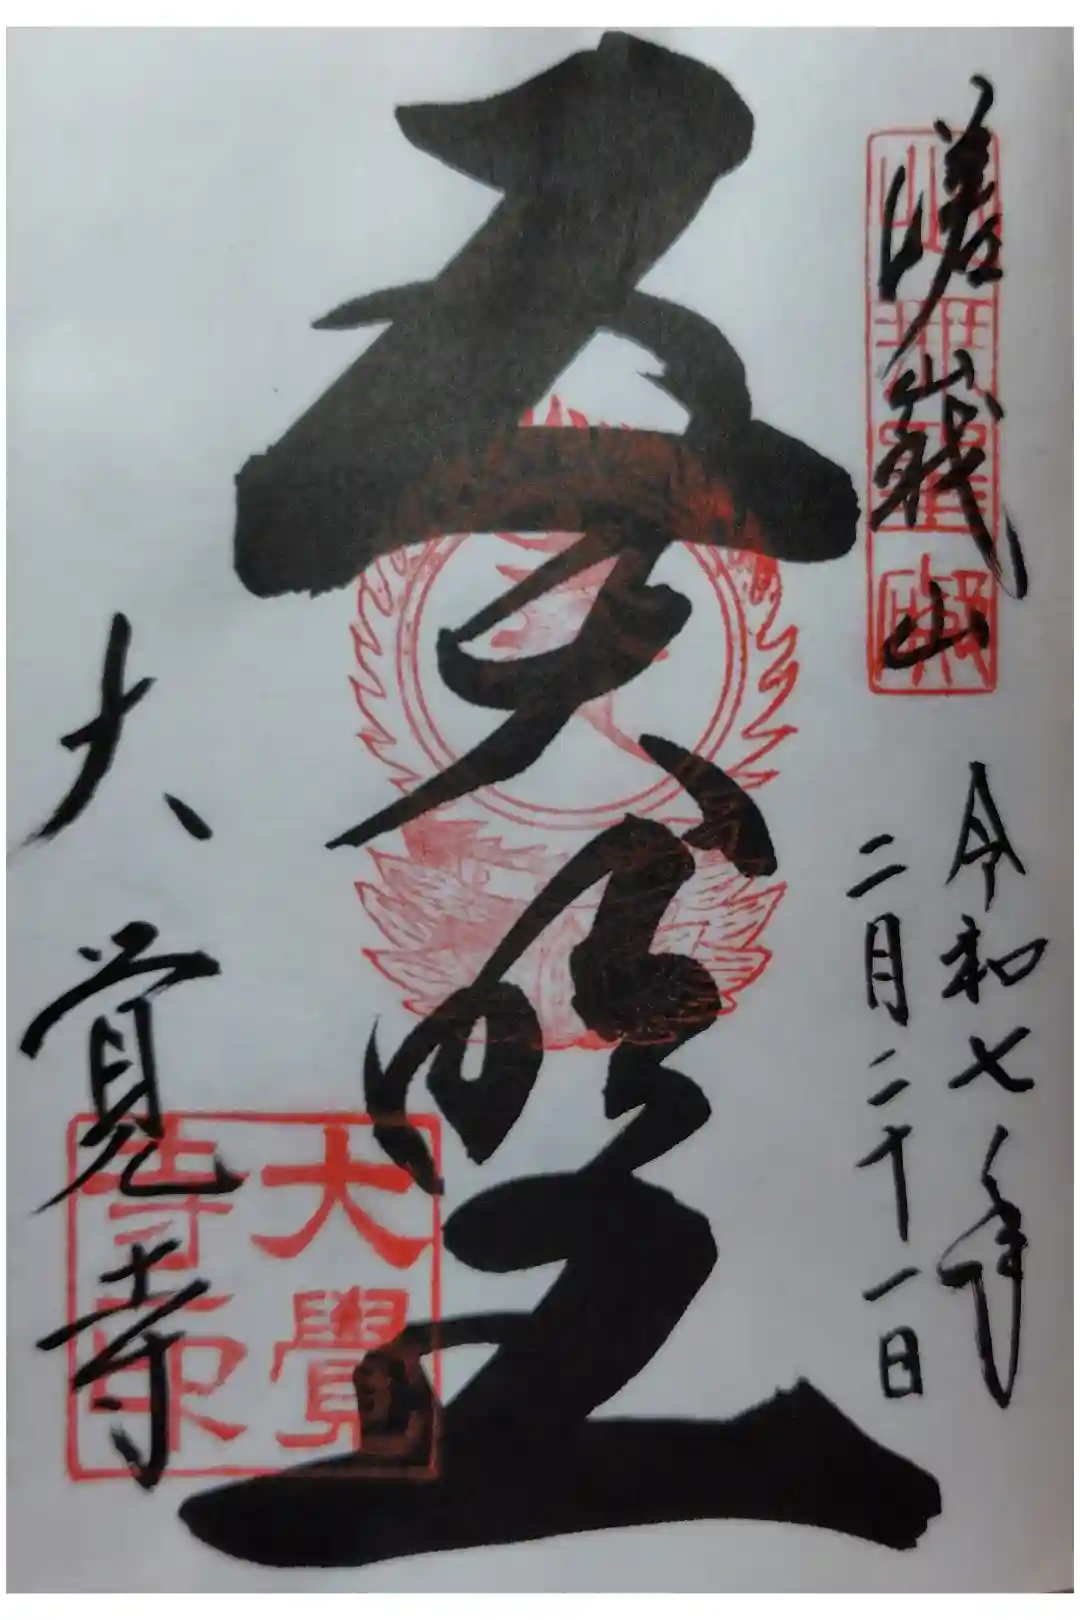 嵯峨山
令和七年
二月二十一日
五大明王
大覚寺
大覺
寺印